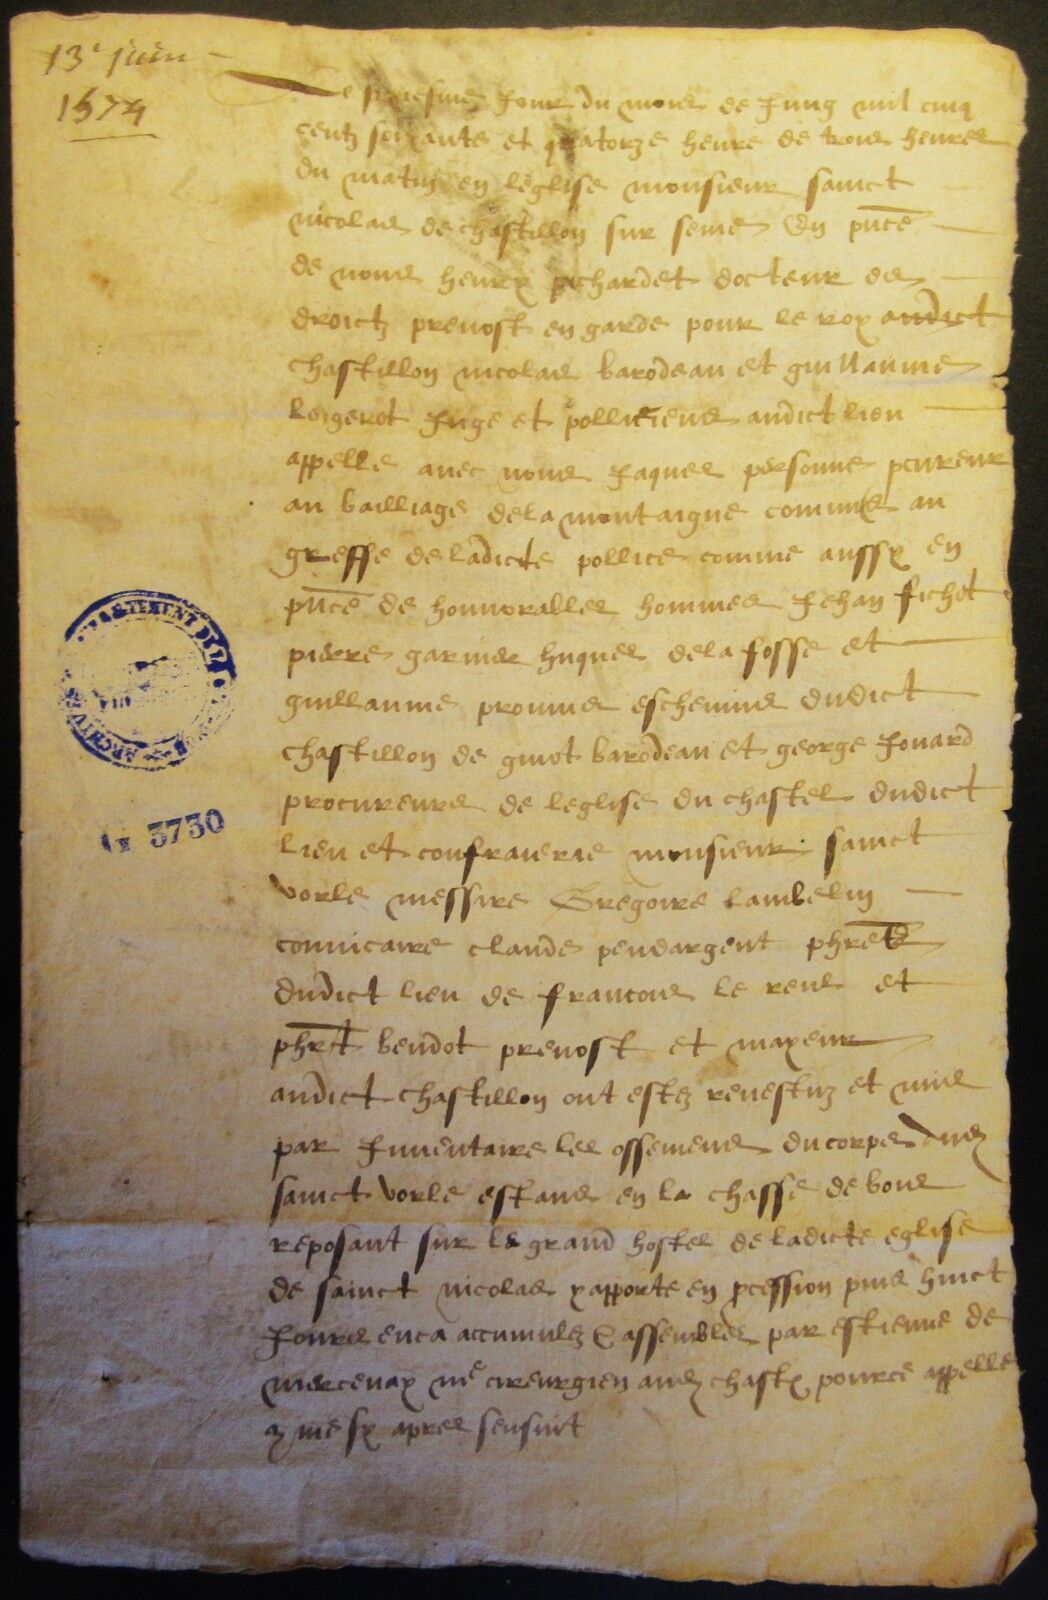 13e juin
1574
Le jour du mois de Jung mil cinq
centz soixante et quatorze heure de trois heures
du matin en leglise monsieur sainct
nicolas de chastillon sur seine En pnce
de nous henry pichardet docteur es
droictz prevost en garde pour le roy audict
chastillon nicolas barodeau et guillaume
Loigerot Juge et polliciens audict lieu
appelle avec nous Jaques personne pcureur
au bailliage de la montaigne commis au
greffe de ladicte pollice comme aussy en
pnce de honnorables hommes Jehan fichot
pierre garnier huques de la fosse et
guillaume eschevins dudict
chastillon de guiot barodeau et george Jouard
procureurs de leglise du chastel dudict
Lieu et confrairie monsieur sainct
vorle messire Gregoire Lambelin
convicaire claude pendargent phrets
dudict lieu de francois le reul et
phrt beudot prevost et mayeur
audict chastillon ont estez revestuz et mis
par Inventaire les ossemens du corps dud
sainct vorle estans en la chasse de bois
reposant sur le grand hostel de ladicte eglise
de sainct nicolas y apporte en pcession puis huict
Jours enca accumulez & assembles par estienne de
mercenay me cirurgien aud chastn pource appelle
apres sensuit
ARCHIVES
DEPARTEMENT DE L
3730